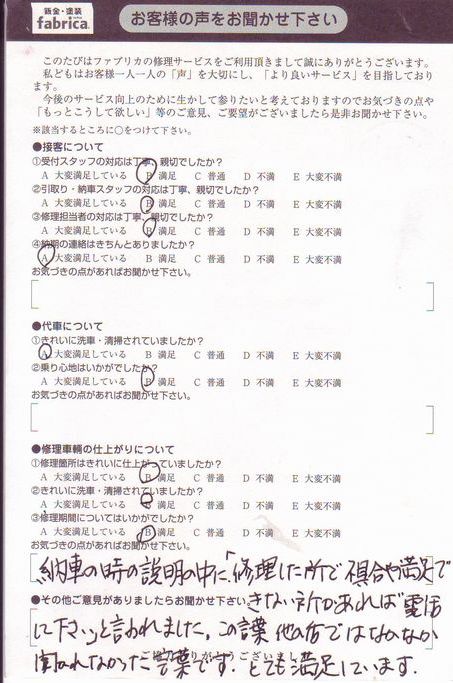 鈑金・塗装
fabrica.
お客様の声をお聞かせ下さい
このたびはファブリカの修理サービスをご利用頂きまして誠にありがとうございます。
私どもはお客様一人一人の「声」を大切にし、「より良いサービス」を目指しており
ます。
今後のサービス向上のために生かして参りたいと考えておりますのでお気づきの点や
「もっとこうして欲しい」等のご意見、ご要望がございましたら是非お聞かせ下さい。
※該当するところに○をつけて下さい。
●接客について
①受付スタッフの対応は丁寧、親切でしたか?
A 大変満足している B 満足 C 普通 D 不満 E 大変不満
②引取り・納車スタッフの対応は丁寧、親切でしたか?
A 大変満足している B 満足 C 普通 D 不満 E 大変不満
③修理担当者の対応は丁寧、親切でしたか?
A 大変満足している B 満足 C 普通 D 不満 E 大変不満
④納期の連絡はきちんとありましたか?
A 大変満足している B 満足 C 普通 D 不満 E 大変不満
お気づきの点があればお聞かせ下さい。
●代車について
①きれいに洗車・清掃されていましたか?
A 大変満足している B 満足 C 普通 D 不満 E 大変不満
②乗り心地はいかがでしたか?
A 大変満足している B 満足 C 普通 D 不満 E 大変不満
お気づきの点があればお聞かせ下さい。
●修理車輌の仕上がりについて
①修理箇所はきれいに仕上がっていましたか?
A 大変満足している B 満足 C 普通 D 不満 E 大変不満
②きれいに洗車・清掃されていましたか?
A 大変満足している B 満足 C 普通 D 不満 E 大変不満
③修理期間についてはいかがでしたか?
A 大変満足している B 満足 C 普通 D 不満 E 大変不満
お気づきの点があればお聞かせ下さい。
納車の時の説明の中に「修理した所で具合や満足で
●その他ご意見がありましたらお聞かせ下さい。
きない所があれば電話
に下さい」と言われました。この言葉 他の店ではなかなか
聞かれなかった言葉です。とても満足しています.
ご協力ありがとうございました